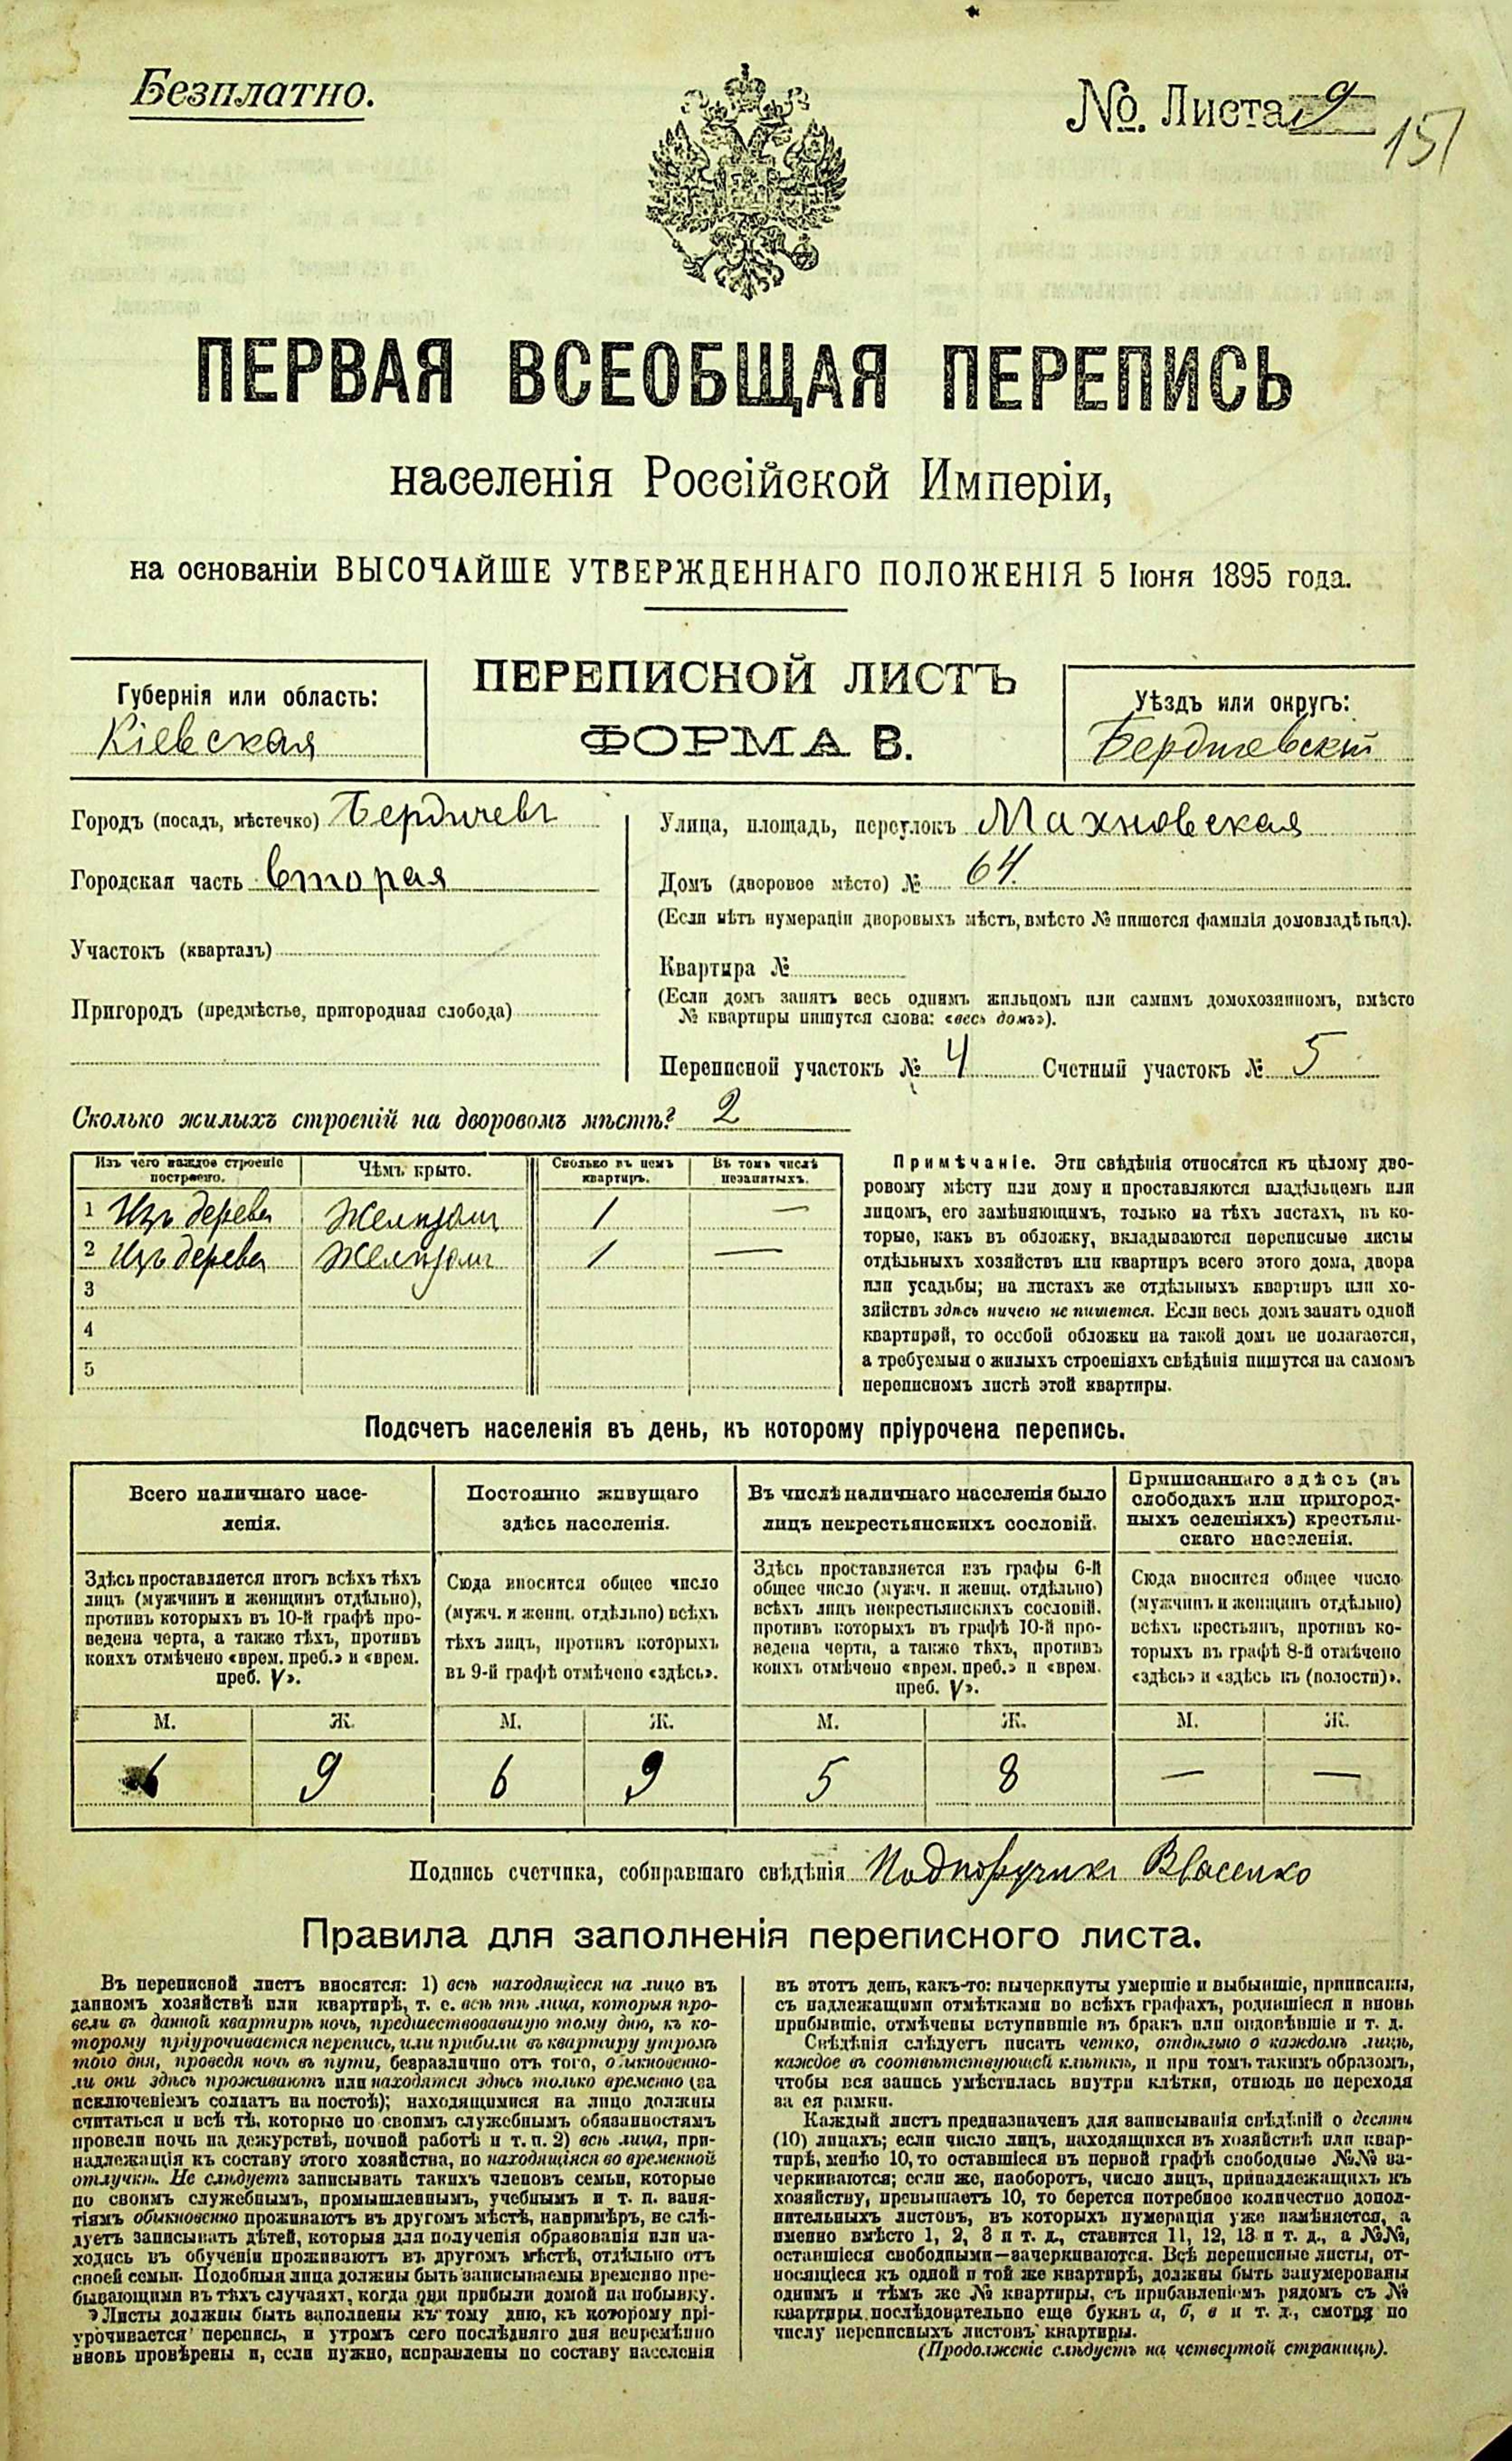 Безплатно.
№. Листа 9
151
ПЕРВАЯ ВСЕОБЩАЯ ПЕРЕПИСЬ
населенія Россійской Имперіи,
на основаніи ВЫСОЧАЙШЕ УТВЕРЖДЕННАГО ПОЛОЖЕНІЯ 5 Іюня 1895 года.
Губернія или область:
Кіевская
ПЕРЕПИСНОЙ ЛИСТЪ
ФОРМА В.
Уѣздъ или округъ:
Бердичевскій
Городъ (посадъ, мѣстечко) Бердичевъ
Городская часть вторая
Участокъ (кварталъ)
Пригородъ (предмѣстье, пригородная слобода)
Улица, площадь, переулокъ Махновская
Домъ (дворовое мѣсто) № 64.
(Если нѣтъ нумераціи дворовыхъ мѣстъ, вмѣсто № пишется фамилія домовладѣльца).
Квартира №
(Если домъ занятъ весь однимъ жильцомъ или самимъ домохозяиномъ, вмѣсто
№ квартиры пишутся слова: «весь домъ»).
Переписной участокъ № 4 Счетный участокъ № 5
Сколько жилыхъ строеній на дворовомъ мѣстѣ? 2
Изъ чего каждое строеніе
построено.
Чѣмъ крыто.
Сколько въ немъ
квартиръ.
Въ томъ числѣ
незанятыхъ.
1 Изъ дерева Желѣзомъ 1 —
2 Изъ дерева Желѣзомъ 1 —
3
4
5
Примѣчаніе. Эти свѣдѣнія относятся къ цѣлому дво-
ровому мѣсту или дому и проставляются владѣльцемъ или
лицомъ, его замѣняющимъ, только на тѣхъ листахъ, въ ко-
торые, какъ въ обложку, вкладываются переписные листы
отдѣльныхъ хозяйствъ или квартиръ всего этого дома, двора
или усадьбы; на листахъ же отдѣльныхъ квартиръ или хо-
зяйствъ здѣсь ничего не пишется. Если весь домъ занятъ одной
квартирой, то особой обложки на такой домъ не полагается,
а требуемыя о жилыхъ строеніяхъ свѣдѣнія пишутся на самомъ
переписномъ листѣ этой квартиры.
Подсчетъ населенія въ день, къ которому пріурочена перепись.
Всего наличнаго насе-
ленія.
Здѣсь проставляется итогъ всѣхъ тѣхъ
лицъ (мужчинъ и женщинъ отдѣльно),
противъ которыхъ въ 10-й графѣ про-
ведена черта, а также тѣхъ, противъ
коихъ отмѣчено «врем. преб.» и «врем.
преб. V».
Постоянно живущаго
здѣсь населенія.
Сюда вносится общее число
(мужч. и женщ. отдѣльно) всѣхъ
тѣхъ лицъ, противъ которыхъ
въ 9-й графѣ отмѣчено «здѣсь».
Въ числѣ наличнаго населенія было
лицъ некрестьянскихъ сословій.
Здѣсь проставляется изъ графы 6-й
общее число (мужч. и женщ. отдѣльно)
всѣхъ лицъ некрестьянскихъ сословій,
противъ которыхъ въ графѣ 10-й про-
ведена черта, а также тѣхъ, противъ
коихъ отмѣчено «врем. преб.» и «врем.
преб. V».
Приписаннаго здѣсь (въ
слободахъ или пригород-
ныхъ селеніяхъ) крестьян-
скаго населенія.
Сюда вносится общее число
(мужчинъ и женщинъ отдѣльно)
всѣхъ крестьянъ, противъ ко-
торыхъ въ графѣ 8-й отмѣчено
«здѣсь» и «здѣсь къ (волости)».
М. Ж. М. Ж. М. Ж. М. Ж.
6 9 6 9 5 8 — —
Подпись счетчика, собиравшаго свѣдѣнія Подпоручикъ Власенко
Правила для заполненія переписного листа.
Въ переписной листъ вносятся: 1) всѣ находящіеся на лицо въ
данномъ хозяйствѣ или квартирѣ, т. е. всѣ тѣ лица, которыя про-
вели въ данной квартирѣ ночь, предшествовавшую тому дню, къ ко-
торому пріурочивается перепись, или прибыли въ квартиру утромъ
того дня, проведя ночь въ пути, безразлично отъ того, обыкновенно-
ли они здѣсь проживаютъ или находятся здѣсь только временно (за
исключеніемъ солдатъ на постоѣ); находящимися на лицо должны
считаться и всѣ тѣ, которые по своимъ служебнымъ обязанностямъ
провели ночь на дежурствѣ, ночной работѣ и т. п. 2) всѣ лица, при-
надлежащія къ составу этого хозяйства, но находящіяся во временной
отлучкѣ. Не слѣдуетъ записывать такихъ членовъ семьи, которые
по своимъ служебнымъ, промышленнымъ, учебнымъ и т. п. заня-
тіямъ обыкновенно проживаютъ въ другомъ мѣстѣ, напримѣръ, не слѣ-
дуетъ записывать дѣтей, которыя для полученія образованія или на-
ходясь въ обученіи проживаютъ въ другомъ мѣстѣ, отдѣльно отъ
своей семьи. Подобныя лица должны быть записываемы временно пре-
бывающими въ тѣхъ случаяхъ, когда они прибыли домой на побывку.
Листы должны быть заполнены къ тому дню, къ которому прі-
урочивается перепись, и утромъ сего послѣдняго дня непремѣнно
вновь провѣрены и, если нужно, исправлены по составу населенія
въ этотъ день, какъ-то: вычеркнуты умершіе и выбывшіе, приписаны,
съ надлежащими отмѣтками во всѣхъ графахъ, родившіеся и вновь
прибывшіе, отмѣчены вступившіе въ бракъ или овдовѣвшіе и т. д.
Свѣдѣнія слѣдуетъ писать четко, отдѣльно о каждомъ лицѣ,
каждое въ соотвѣтствующей клѣткѣ, и при томъ такимъ образомъ,
чтобы вся запись умѣстилась внутри клѣтки, отнюдь не переходя
за ея рамки.
Каждый листъ предназначенъ для записыванія свѣдѣній о десяти
(10) лицахъ; если число лицъ, находящихся въ хозяйствѣ или квар-
тирѣ, менѣе 10, то оставшіеся въ первой графѣ свободные №№ за-
черкиваются; если же, наоборотъ, число лицъ, принадлежащихъ къ
хозяйству, превышаетъ 10, то берется потребное количество допол-
нительныхъ листовъ, въ которыхъ нумерація уже измѣняется, а
именно вмѣсто 1, 2, 3 и т. д., ставится 11, 12, 13 и т. д., а №№,
оставшіеся свободными—зачеркиваются. Всѣ переписные листы, от-
носящіеся къ одной и той же квартирѣ, должны быть занумерованы
однимъ и тѣмъ же № квартиры, съ прибавленіемъ рядомъ съ №
квартиры послѣдовательно еще буквъ а, б, в и т. д., смотря по
числу переписныхъ листовъ квартиры.
(Продолженіе слѣдуетъ на четвертой страницѣ).